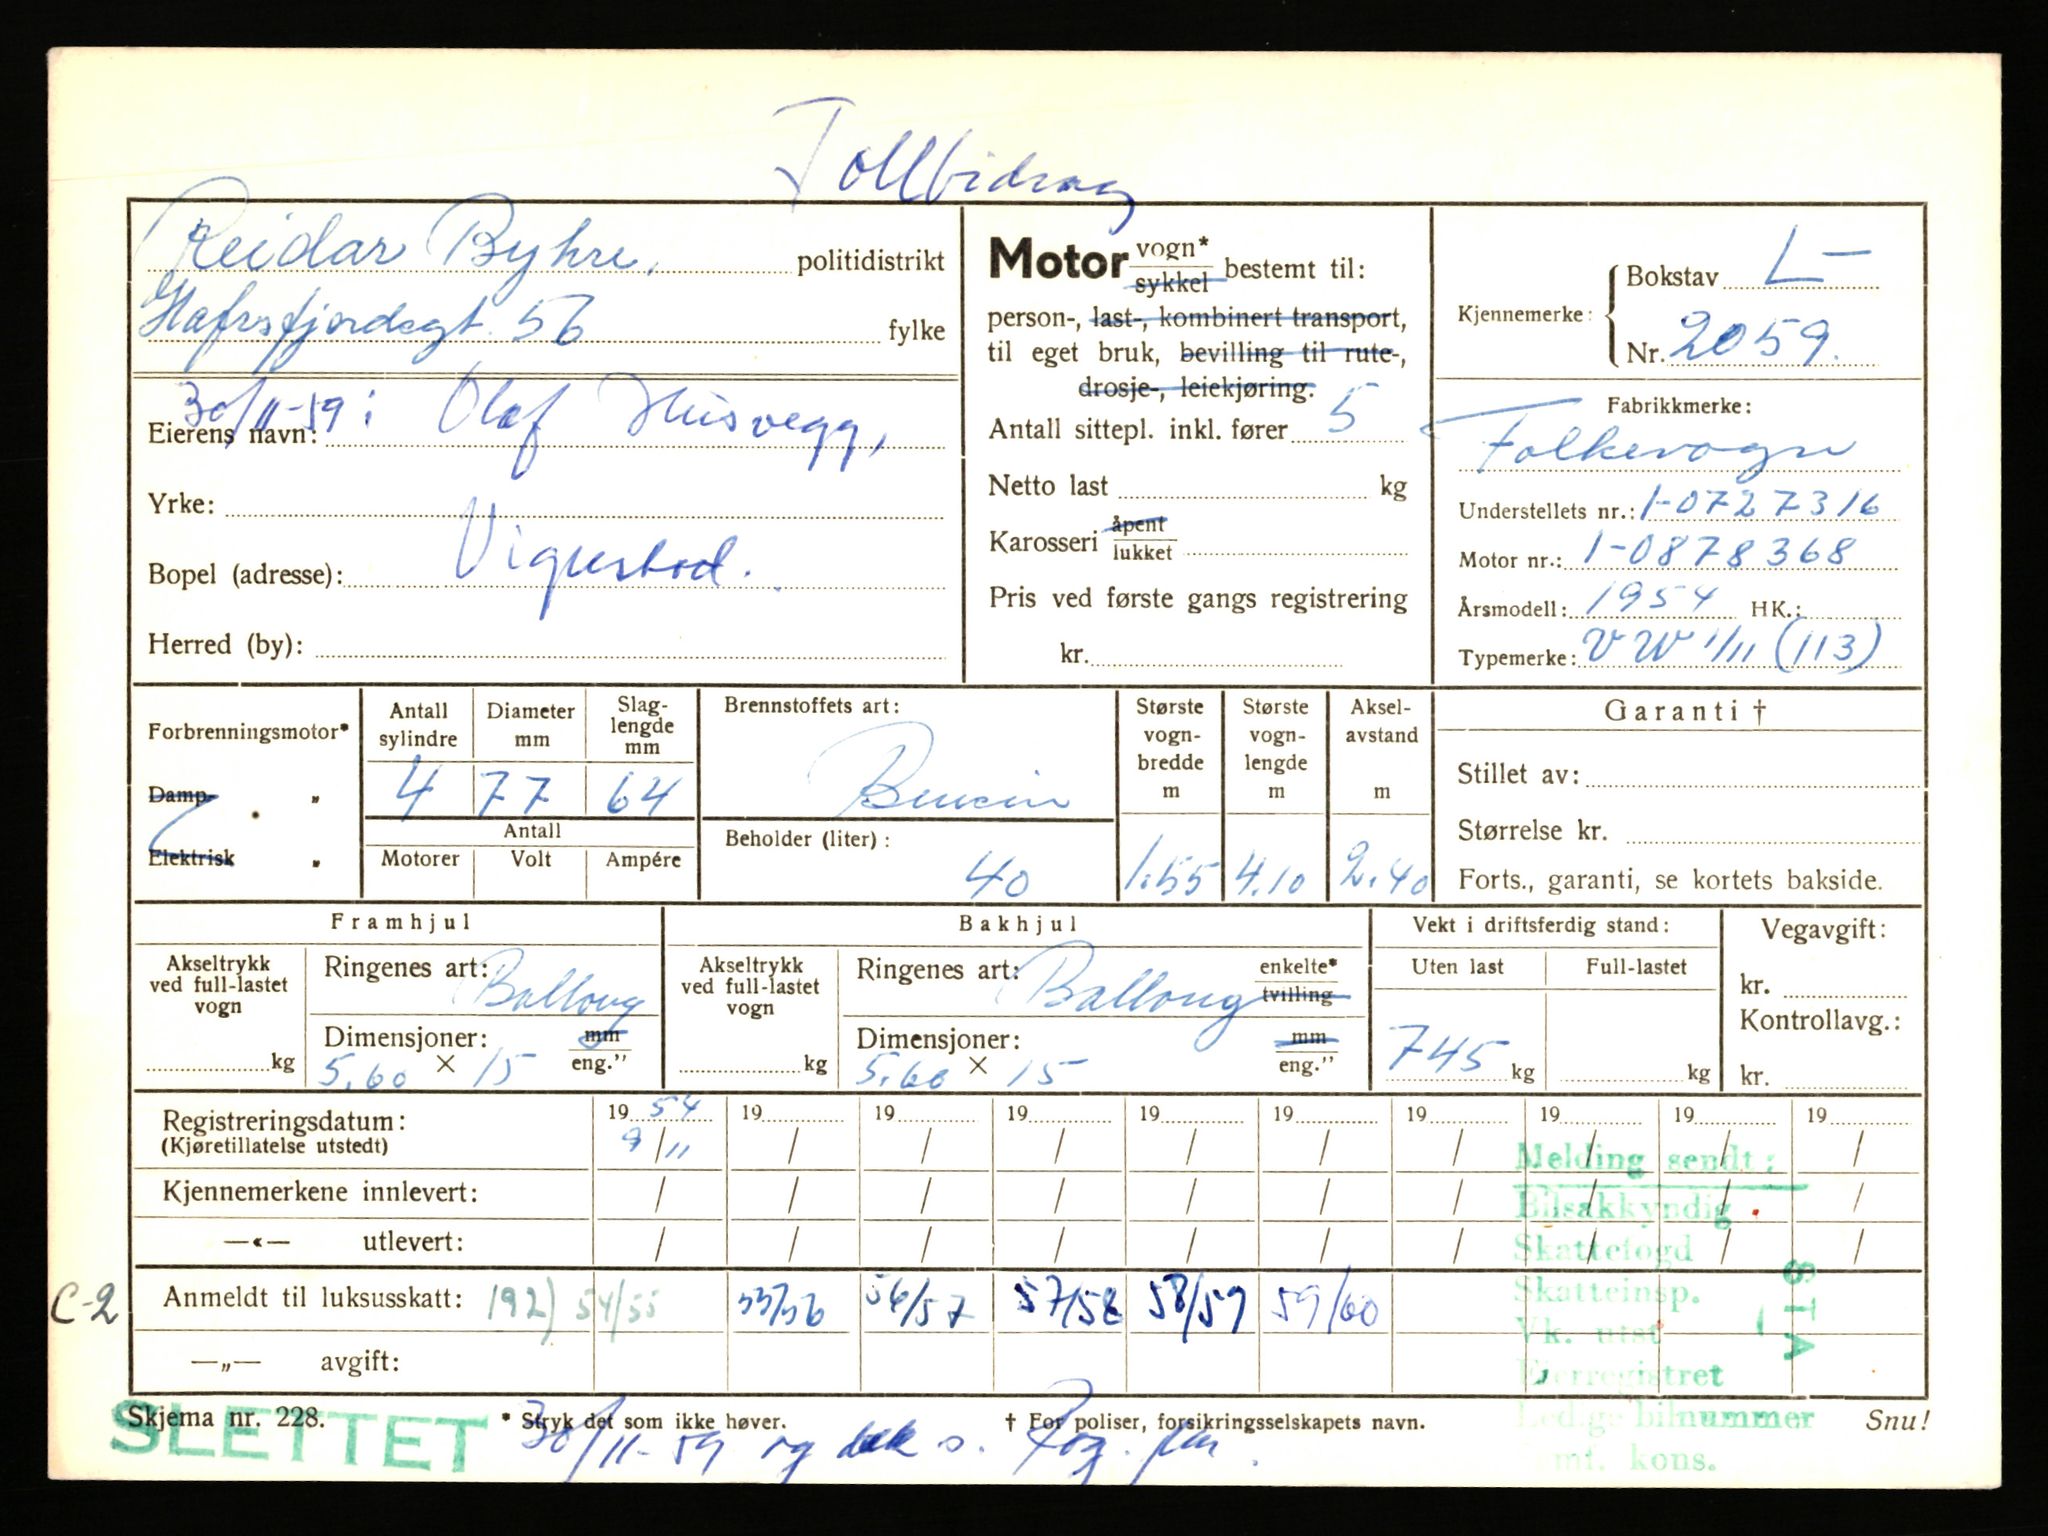 Tollbidrag
Reidar Byhre, politidistrikt
Hafrsfjordsgt. 56 fylke
30/11-59:
Eierens navn: Olaf Husvegg,
Yrke:
Bopel (adresse): Vigrestad.
Herred (by):
Motor vogn* sykkel bestemt til:
person-, last-, kombinert transport,
til eget bruk, bevilling til rute-,
drosje-, leiekjøring.
Antall sittepl. inkl. fører 5
Netto last kg
Karosseri åpent lukket
Pris ved første gangs registrering
kr.
Kjennemerke: Bokstav L-
Nr. 2059.
Fabrikkmerke:
Folkevogn
Understellets nr.: 1-0727316
Motor nr.: 1-0878368
Årsmodell: 1954 HK.:
Typemerke: VW 1/11 (113)
Forbrenningsmotor*
Damp- „
Elektrisk „
Antall sylindre
Diameter mm
Slag-lengde mm
4 77 64
Antall
Motorer Volt Ampére
Brennstoffets art:
Bensin
Beholder (liter):
40
Største vogn-bredde m
1.55
Største vogn-lengde m
4.10
Aksel-avstand m
2.40
Garanti †
Stillet av:
Størrelse kr.
Forts., garanti, se kortets bakside.
Framhjul
Akseltrykk ved full-lastet vogn
kg
Ringenes art: Ballong
Dimensjoner: mm eng."
5.60 × 15
Bakhjul
Akseltrykk ved full-lastet vogn
kg
Ringenes art: Ballong enkelte* tvilling
Dimensjoner: mm eng."
5.60 × 15
Vekt i driftsferdig stand:
Uten last Full-lastet
745 kg kg
Vegavgift:
kr.
Kontrollavg.:
kr.
Registreringsdatum: 19 54 19 19 19 19 19 19 19 19 19
(Kjøretillatelse utstedt) 9/11 / / / / / / / / /
Kjennemerkene innlevert: / / / / / / / / / /
—«— utlevert: / / / / / / / / / /
C-2
Anmeldt til luksusskatt: 192) 54/55 55/56 56/57 57/58 58/59 59/60
—„— avgift:
Melding sendt:
Bilsakkyndig
Skattefogd
Skatteinsp.
Vk. utst
Eierregistret
Ledige bilnummer
mf. kons.
Skjema nr. 228. * Stryk det som ikke høver. † For poliser, forsikringsselskapets navn. Snu!
SLETTET 30/11-59 og